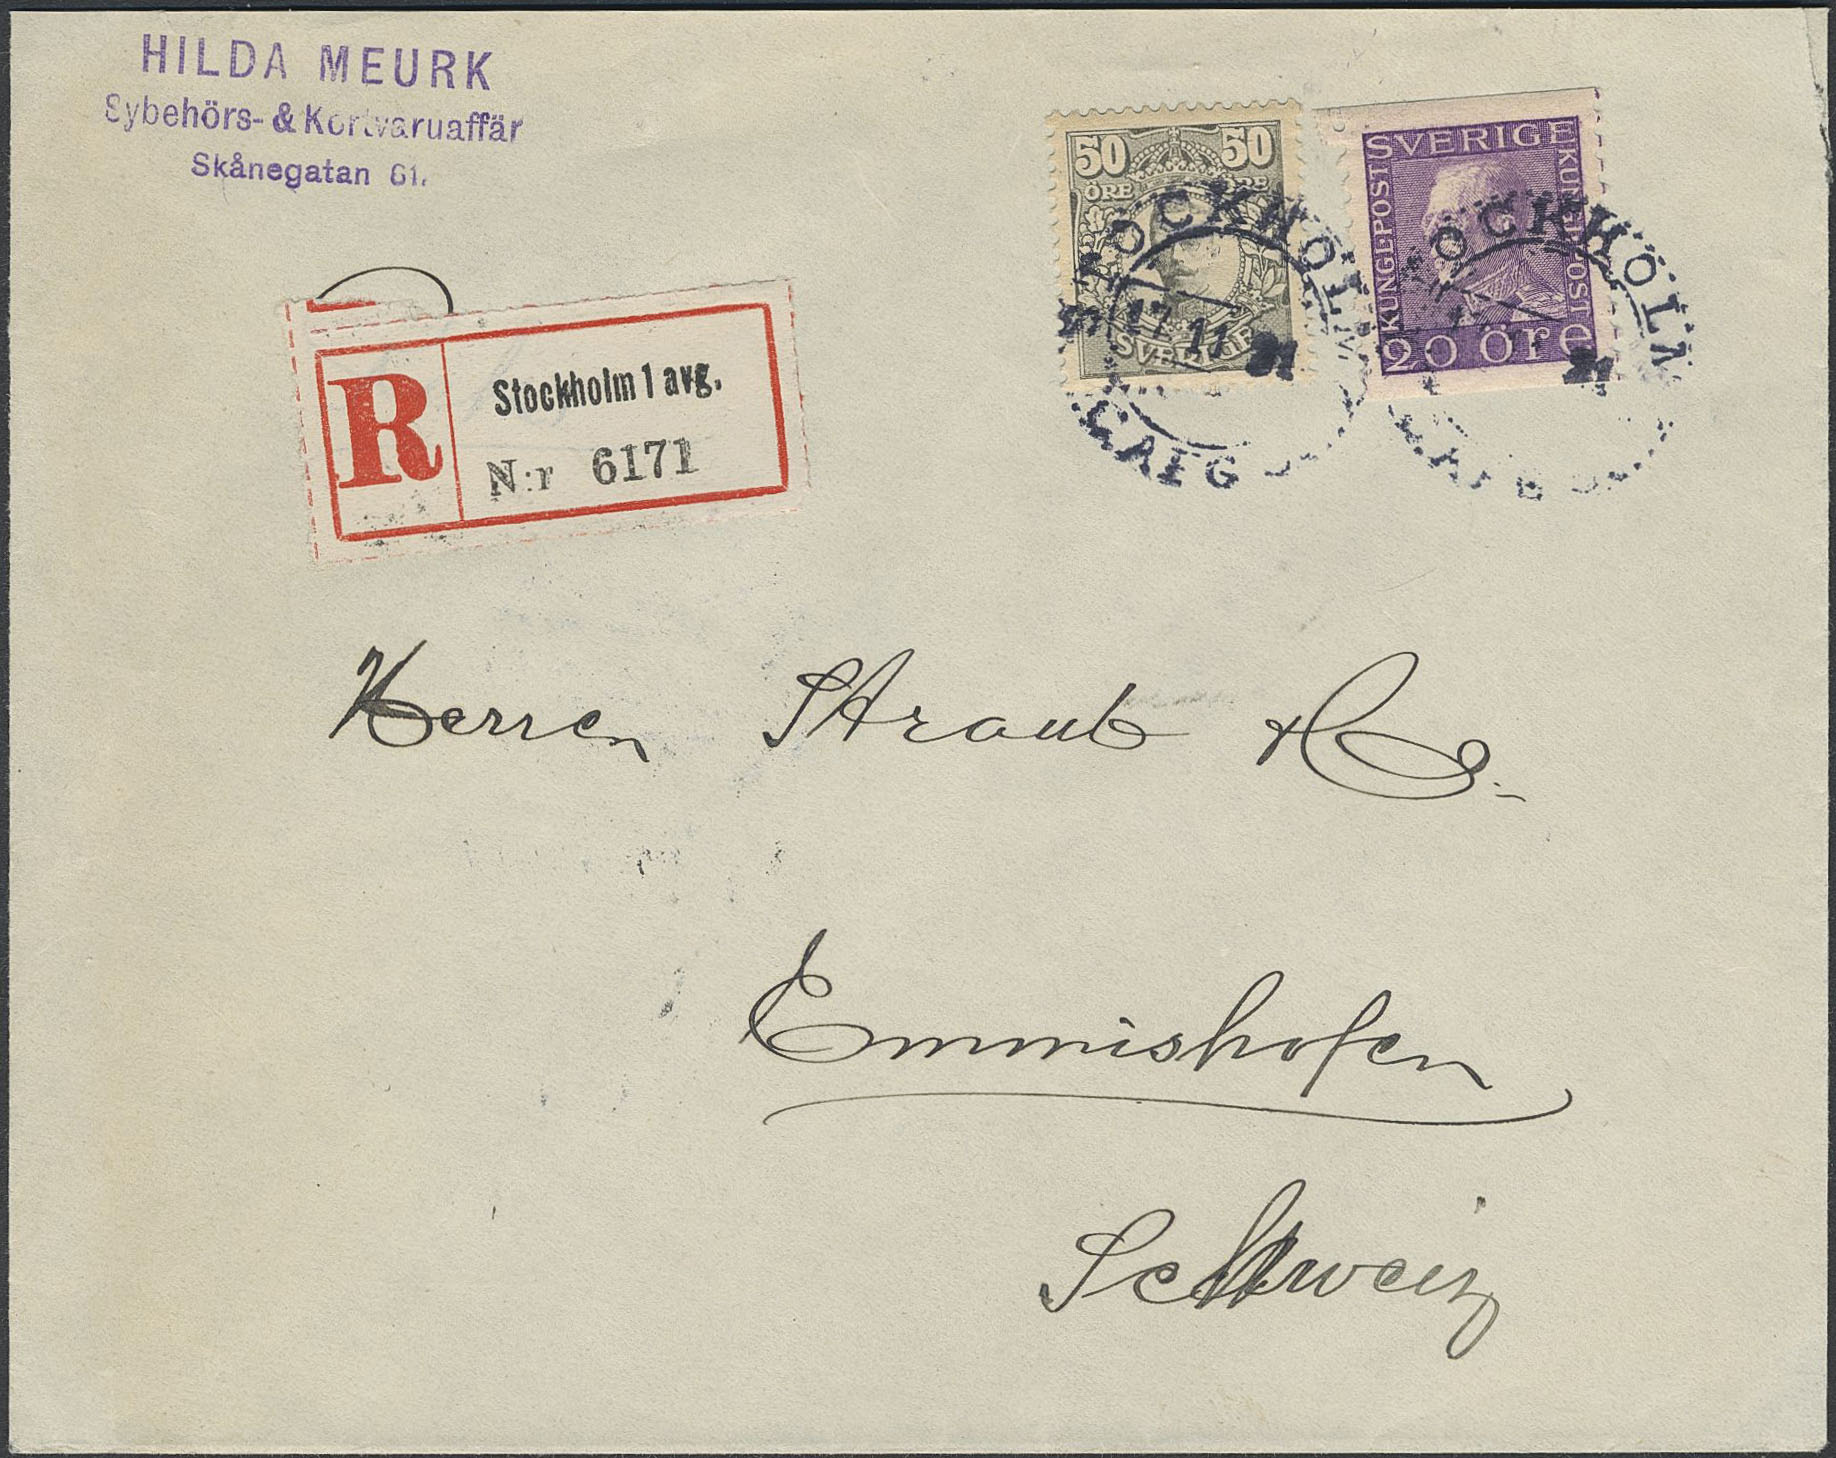 HILDA MEURK
Sybehörs- & Kortvaruaffär
Skånegatan 61.
50 50
ÖRE ÖRE
SVERIGE
SVERIGE
KUNGL·POST
KUNGL·POST
20 öre
STOCKHOLM
17.11 21
STOCKHOLM
21
R
Stockholm 1 avg.
N:r 6171
Herren Straub & Co.
Emmishofen
Schweiz